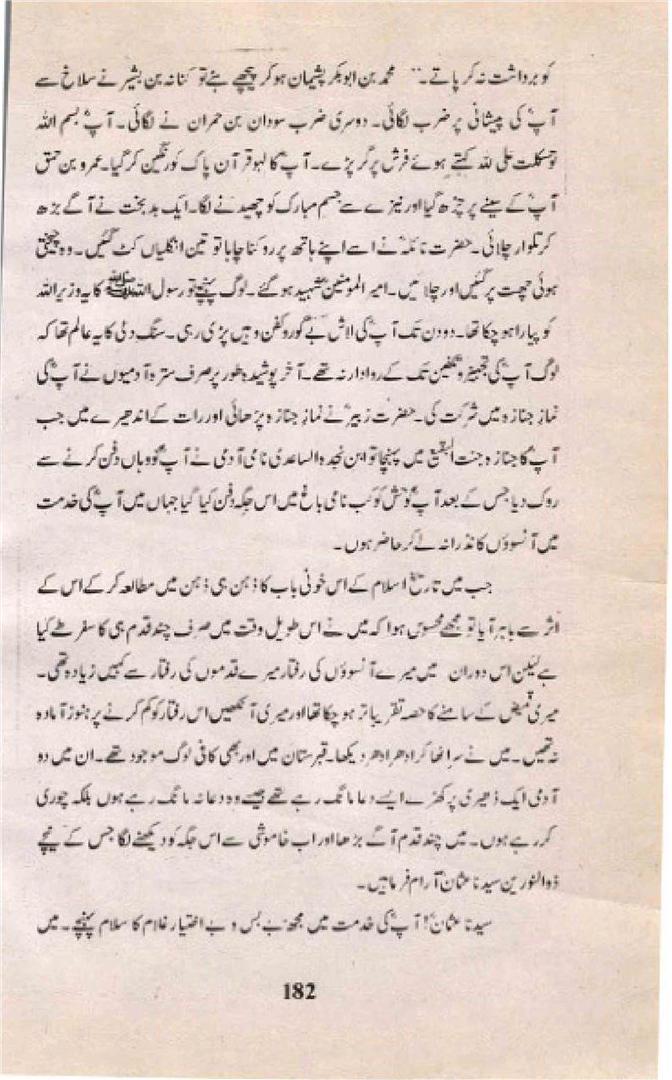 کو برداشت نہ کر پاتے۔“ محمد بن ابوبکر پشیمان ہو کر پیچھے ہٹے تو کنانہ بن بشیر نے سلاخ سے
آپؓ کی پیشانی پر ضرب لگائی۔ دوسری ضرب سودان بن حمران نے لگائی۔ آپؓ بسم اللہ
توکلت علی للہ کہتے ہوئے فرش پر گر پڑے۔ آپؓ کا لہو قرآن پاک کو رنگین کر گیا۔ عمرو بن حمق
آپؓ کے سینے پر چڑھ گیا اور نیزے سے جسم مبارک کو چھیدنے لگا۔ ایک بدبخت نے آگے بڑھ
کر تلوار چلائی۔ حضرت نائلہؓ نے اسے اپنے ہاتھ پر روکنا چاہا تو تین انگلیاں کٹ گئیں۔ وہ چیختی
ہوئی چھت پر گئیں اور چلائیں۔ امیر المومنینؓ شہید ہو گئے۔ لوگ پہنچے تو رسول اللہ ﷺ کا یہ وزیر اللہ
کو پیارا ہو چکا تھا۔ دو دن تک آپؓ کی لاش بے گور و کفن وہیں پڑی رہی۔ سنگ دلی کا یہ عالم تھا کہ
لوگ آپؓ کی تجہیز و تکفین تک کے روادار نہ تھے۔ آخر پوشیدہ طور پر صرف سترہ آدمیوں نے آپؓ کی
نماز جنازہ میں شرکت کی۔ حضرت زبیرؓ نے نماز جنازہ پڑھائی اور رات کے اندھیرے میں جب
آپؓ کا جنازہ جنت البقیع میں پہنچا تو ابن نجدہ الساعدی نامی آدمی نے آپؓ کو وہاں دفن کرنے سے
روک دیا جس کے بعد آپؓ کو حش کوکب نامی باغ میں اس جگہ دفن کیا گیا جہاں میں آپؓ کی خدمت
میں آنسوؤں کا نذرانہ لے کر حاضر ہوں۔
جب میں تاریخ اسلام کے اس خونی باب کا ذہن ہی ذہن میں مطالعہ کر کے اس کے
اثر سے باہر آیا تو مجھے محسوس ہوا کہ میں نے اس طویل وقت میں صرف چند قدم ہی کا سفر طے کیا
ہے لیکن اس دوران میں میرے آنسوؤں کی رفتار میرے قدموں کی رفتار سے کہیں زیادہ تھی۔
میری قمیض کے سامنے کا حصہ تقریبا تر ہو چکا تھا اور میری آنکھیں اس رفتار کو کم کرنے پر ہنوز آمادہ
نہ تھیں۔ میں نے سر اٹھا کر ادھر ادھر دیکھا۔ قبرستان میں اور بھی کافی لوگ موجود تھے۔ ان میں دو
آدمی ایک ڈھیری پر کھڑے ایسے دعا مانگ رہے تھے جیسے وہ دعا نہ مانگ رہے ہوں بلکہ چوری
کر رہے ہوں۔ میں چند قدم آگے بڑھا اور اب خاموشی سے اس جگہ کو دیکھنے لگا جس کے نیچے
ذوالنورین سیدنا عثمانؓ آرام فرما ہیں۔
سیدنا عثمانؓ! آپؓ کی خدمت میں مجھ بے بس و بے اختیار غلام کا سلام پہنچے۔ میں
182